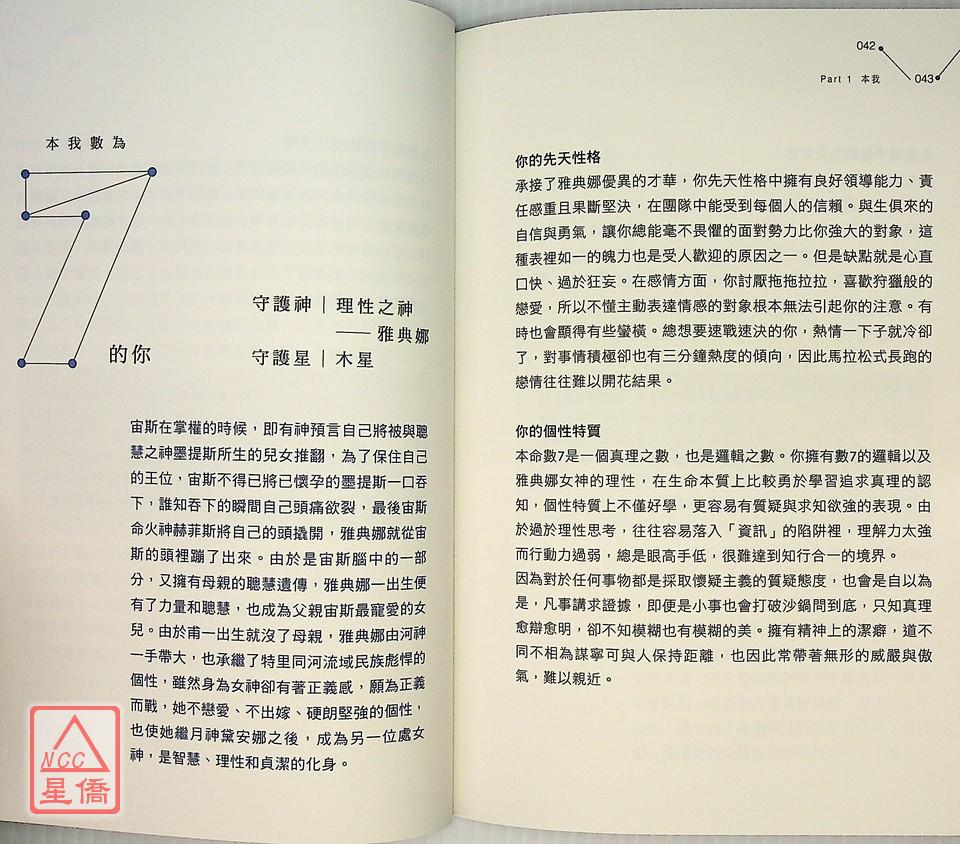 本我數為
7
的你
守護神｜理性之神
——雅典娜
守護星｜木星
宙斯在掌權的時候，即有神預言自己將被與聰
慧之神墨提斯所生的兒女推翻，為了保住自己
的王位，宙斯不得已將已懷孕的墨提斯一口吞
下，誰知吞下的瞬間自己頭痛欲裂，最後宙斯
命火神赫菲斯將自己的頭撬開，雅典娜就從宙
斯的頭裡蹦了出來。由於是宙斯腦中的一部
分，又擁有母親的聰慧遺傳，雅典娜一出生便
有了力量和聰慧，也成為父親宙斯最寵愛的女
兒。由於甫一出生就沒了母親，雅典娜由河神
一手帶大，也承繼了特里同河流域民族彪悍的
個性，雖然身為女神卻有著正義感，願為正義
而戰，她不戀愛、不出嫁、硬朗堅強的個性，
也使她繼月神黛安娜之後，成為另一位處女
神，是智慧、理性和貞潔的化身。
NCC
星僑
042
Part 1 本我 043
你的先天性格
承接了雅典娜優異的才華，你先天性格中擁有良好領導能力、責
任感重且果斷堅決，在團隊中能受到每個人的信賴。與生俱來的
自信與勇氣，讓你總能毫不畏懼的面對勢力比你強大的對象，這
種表裡如一的魄力也是受人歡迎的原因之一。但是缺點就是心直
口快、過於狂妄。在感情方面，你討厭拖拖拉拉，喜歡狩獵般的
戀愛，所以不懂主動表達情感的對象根本無法引起你的注意。有
時也會顯得有些蠻橫。總想要速戰速決的你，熱情一下子就冷卻
了，對事情積極卻也有三分鐘熱度的傾向，因此馬拉松式長跑的
戀情往往難以開花結果。
你的個性特質
本命數7是一個真理之數，也是邏輯之數。你擁有數7的邏輯以及
雅典娜女神的理性，在生命本質上比較勇於學習追求真理的認
知，個性特質上不僅好學，更容易有質疑與求知欲強的表現。由
於過於理性思考，往往容易落入「資訊」的陷阱裡，理解力太強
而行動力過弱，總是眼高手低，很難達到知行合一的境界。
因為對於任何事物都是採取懷疑主義的質疑態度，也會是自以為
是，凡事講求證據，即便是小事也會打破沙鍋問到底，只知真理
愈辯愈明，卻不知模糊也有模糊的美。擁有精神上的潔癖，道不
同不相為謀寧可與人保持距離，也因此常帶著無形的威嚴與傲
氣，難以親近。